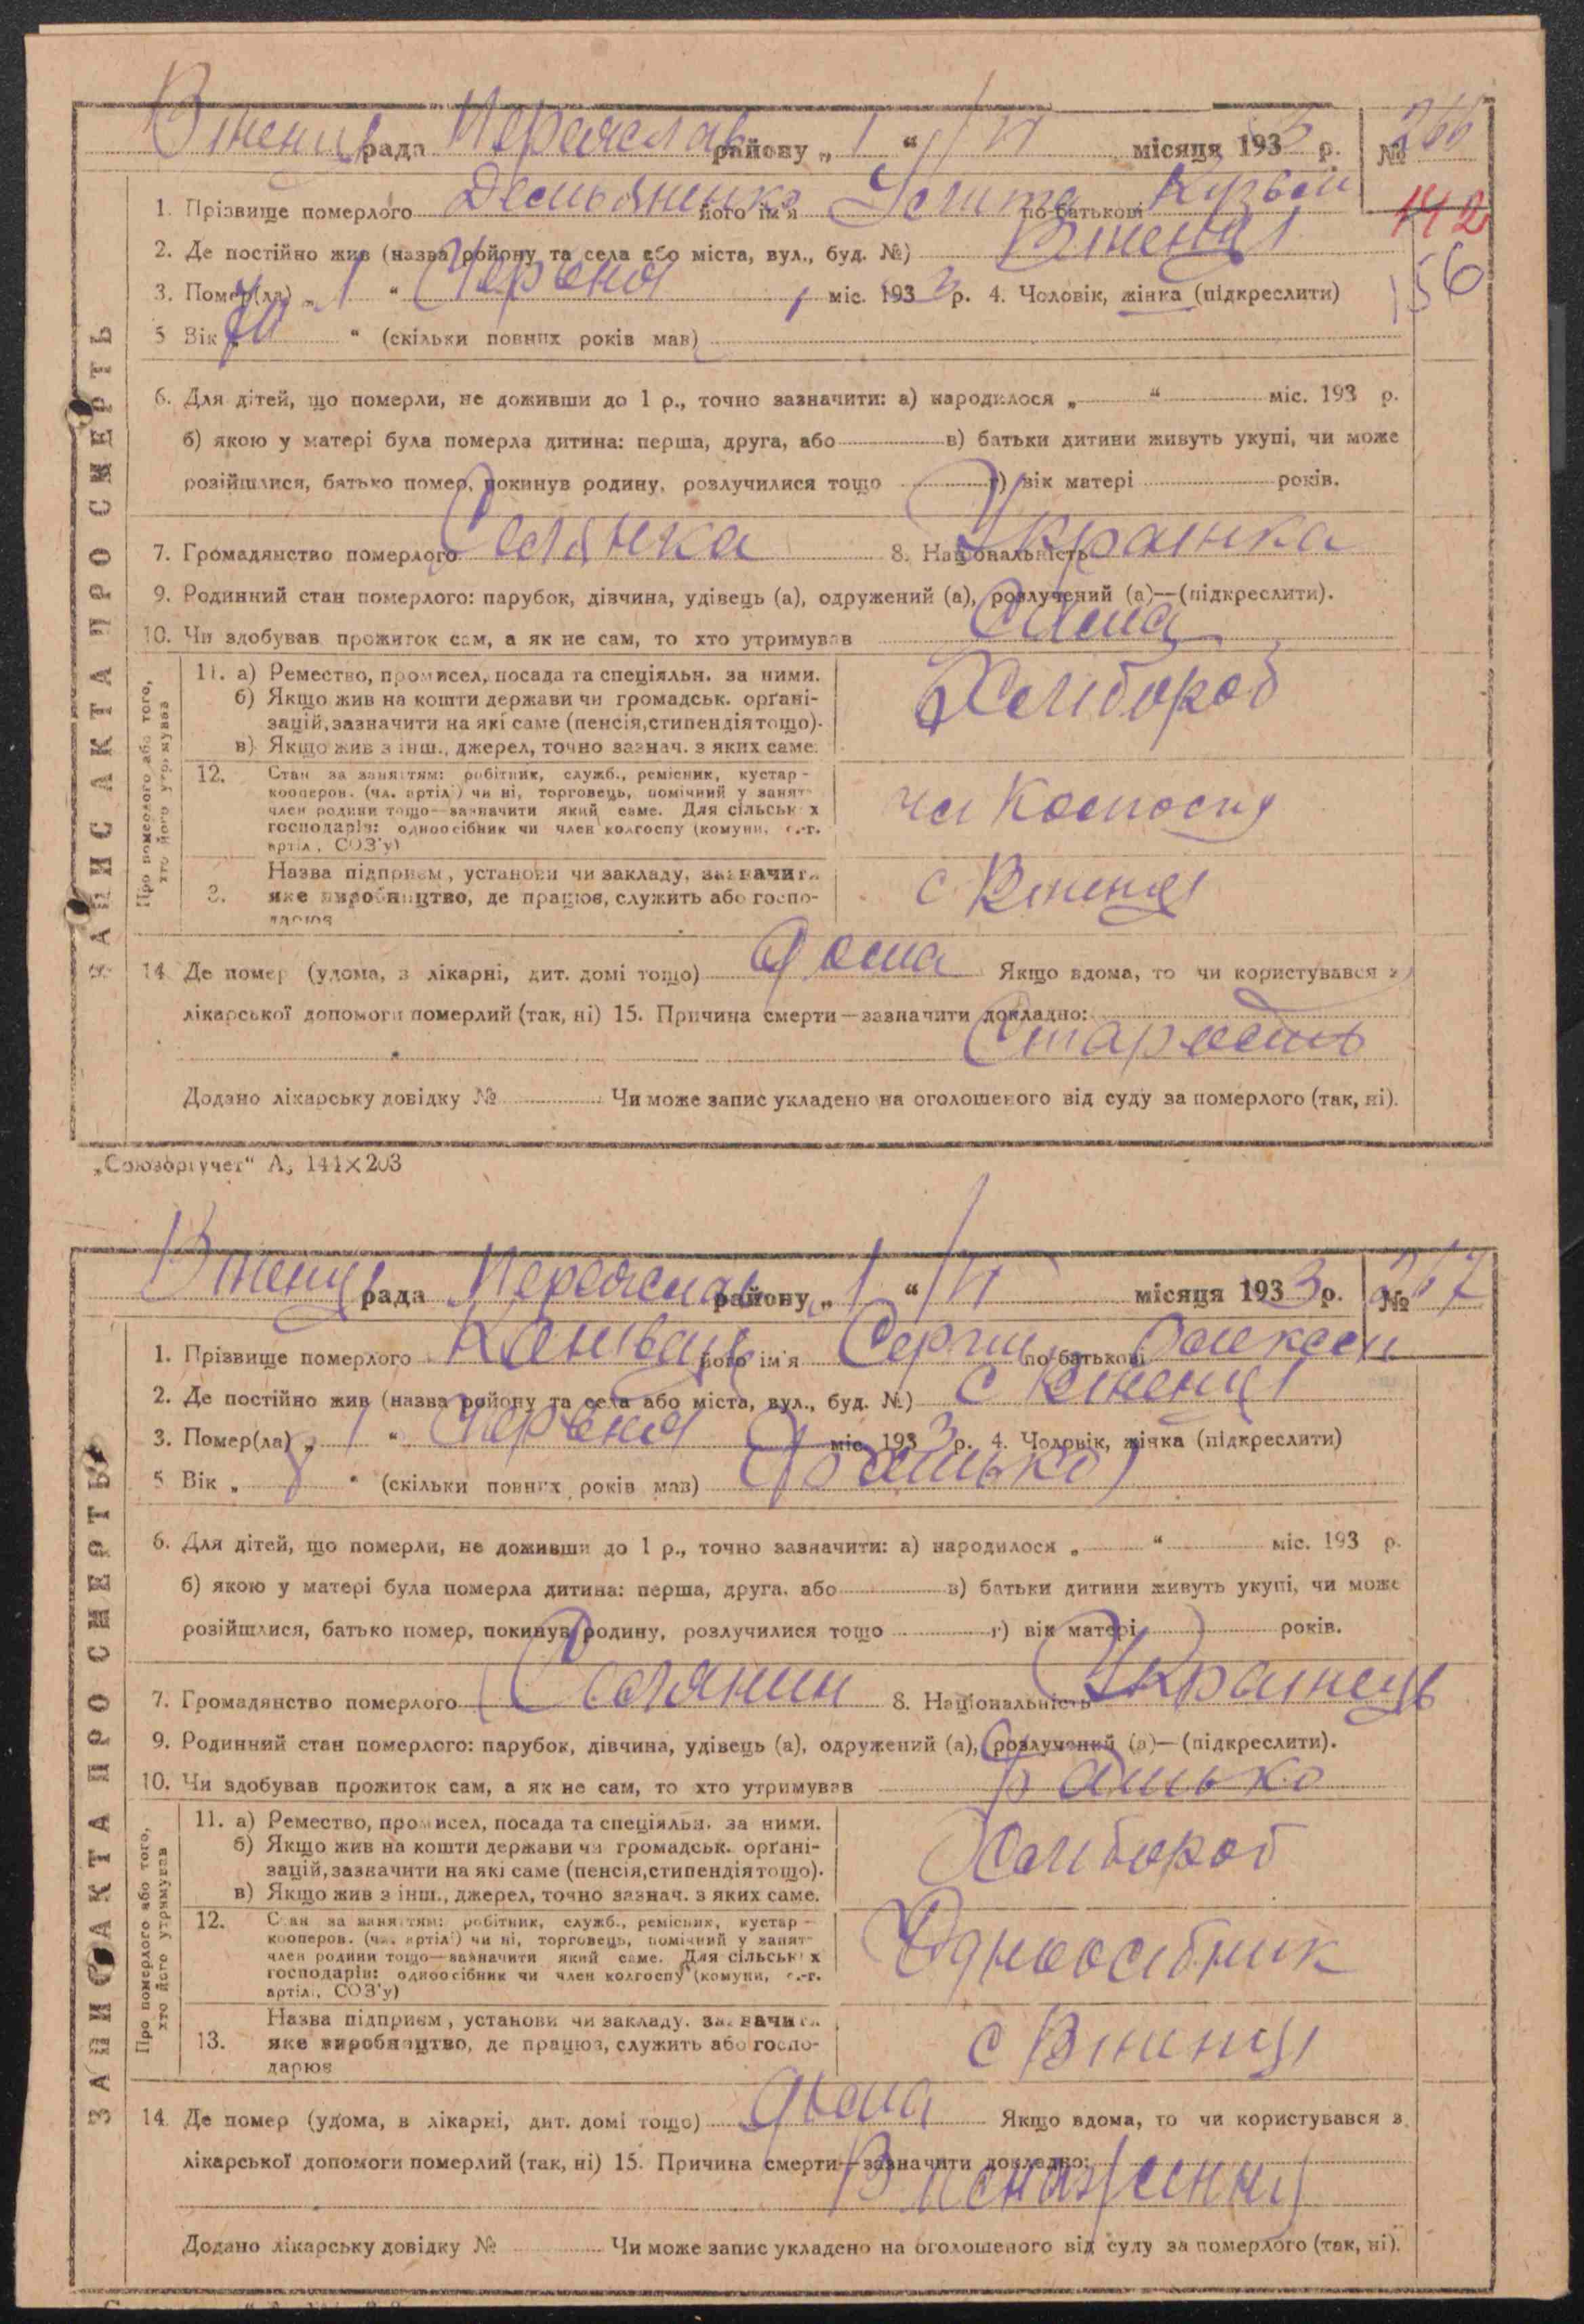 Втенців рада Переяслав району „ 1 “ / VI місяця 1933 р. № 266
1. Прізвище померлого Демьяненко його ім'я Устита по батькові Кузьм
142
2. Де постійно жив (назва району та села або міста, вул., буд. №) Втенці
156
3. Помер(ла) „ 1 “ Червня міс. 1933 р. 4. Чоловік, жінка (підкреслити)
5 Вік „ 70 “ (скільки повних років мав)
6. Для дітей, що померли, не доживши до 1 р., точно зазначити: а) народилося „ “ міс. 193 р.
б) якою у матері була померла дитина: перша, друга, або в) батьки дитини живуть укупі, чи може
розійшлися, батько помер, покинув родину, розлучилися тощо г) вік матері років.
7. Громадянство померлого Селянка 8. Національність Українка
9. Родинний стан померлого: парубок, дівчина, удівець (а), одружений (а), розлучений (а)—(підкреслити).
10. Чи здобував прожиток сам, а як не сам, то хто утримував Сама
ЗАПИС АКТА ПРО СМЕРТЬ
Про померлого або того, хто його утримував
11. а) Ремество, промисел, посада та спеціяльн. за ними.
б) Якщо жив на кошти держави чи громадськ. орґані-
зацій, зазначити на які саме (пенсія, стипендія тощо).
в) Якщо жив з інш., джерел, точно зазнач. з яких саме.
Хлібороб
12. Стан за заняттям: робітник, служб., ремісник, кустар -
кооперов. (чл. артіл.) чи ні, торговець, помічний у занят-
член родини тощо—зазначити який саме. Для сільських
господарів: одноосібник чи член колгоспу (комуни, с.-г.
артіл., СОЗ'у)
чл Колгоспу
3. Назва підприєм, установи чи закладу, зазначити
яке виробництво, де працює, служить або госпо-
дарює
с Втенці
14. Де помер (удома, в лікарні, дит. домі тощо) Дома Якщо вдома, то чи користувався з
лікарської допомоги померлий (так, ні) 15. Причина смерти—зазначити докладно:
Старость
Додано лікарську довідку № Чи може запис укладено на оголошеного від суду за померлого (так, ні).
„Союзоргучет“ А₅ 144×203
Втенців рада Переяслав району „ 1 “ / VI місяця 1933 р. № 267
1. Прізвище померлого його ім'я Сергій по батькові Олексон
2. Де постійно жив (назва району та села або міста, вул., буд. №) с Втенці
3. Помер(ла) „ 1 “ Червня міс. 1933 р. 4. Чоловік, жінка (підкреслити)
5 Вік „ 8 “ (скільки повних років мав) (батько)
6. Для дітей, що померли, не доживши до 1 р., точно зазначити: а) народилося „ “ міс. 193 р.
б) якою у матері була померла дитина: перша, друга, або в) батьки дитини живуть укупі, чи може
розійшлися, батько помер, покинув родину, розлучилися тощо г) вік матері років.
7. Громадянство померлого Селянин 8. Національність Українець
9. Родинний стан померлого: парубок, дівчина, удівець (а), одружений (а), розлучений (а)—(підкреслити).
10. Чи здобував прожиток сам, а як не сам, то хто утримував батько
ЗАПИС АКТА ПРО СМЕРТЬ
Про померлого або того, хто його утримував
11. а) Ремество, промисел, посада та спеціяльн. за ними.
б) Якщо жив на кошти держави чи громадськ. орґані-
зацій, зазначити на які саме (пенсія, стипендія тощо).
в) Якщо жив з інш., джерел, точно зазнач. з яких саме.
Хлібороб
12. Стан за заняттям: робітник, служб., ремісник, кустар -
кооперов. (чл. артіл.) чи ні, торговець, помічний у занят-
член родини тощо—зазначити який саме. Для сільських
господарів: одноосібник чи член колгоспу (комуни, с.-г.
артіл., СОЗ'у)
Одноосібник
13. Назва підприєм, установи чи закладу, зазначити
яке виробництво, де працює, служить або госпо-
дарює
с Втенці
14. Де помер (удома, в лікарні, дит. домі тощо) Дома Якщо вдома, то чи користувався з
лікарської допомоги померлий (так, ні) 15. Причина смерти—зазначити докладно:
Виснаження
Додано лікарську довідку № Чи може запис укладено на оголошеного від суду за померлого (так, ні).